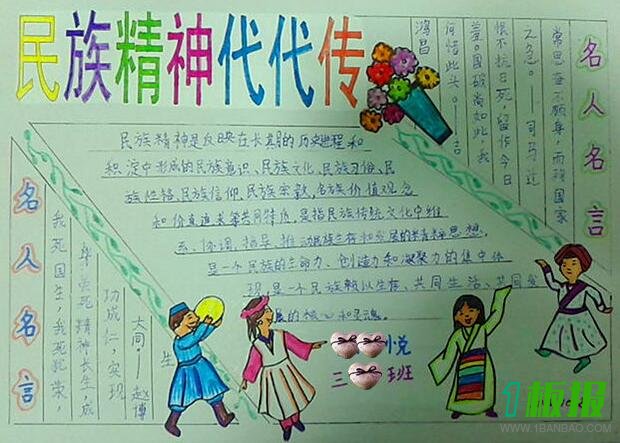 民族精神代代传
名人名言
常思奋不顾身,而殉国家
之急。——司马迁
恨不抗日死,留作今日
羞。国破尚如此,我
何惜此头。——吉
鸿昌
民族精神是反映在长期的历史进程和
积淀中形成的民族意识、民族文化、民族习俗、民
族性格、民族信仰、民族宗教,民族价值观念
和价值追求等共同特质,是指民族传统文化中维
系、协调、指导、推动民族生存和发展的精粹思想,
是一个民族的生命力、创造力和凝聚力的集中体
现,是一个民族赖以生存、共同生活、共同发
展的核心和灵魂。
名人名言
我死国生,我死犹荣,
身虽死精神长生,成
功成仁,实现
大同。——赵博
生
悦
三 班
1板报
WWW.1BANBAO.COM